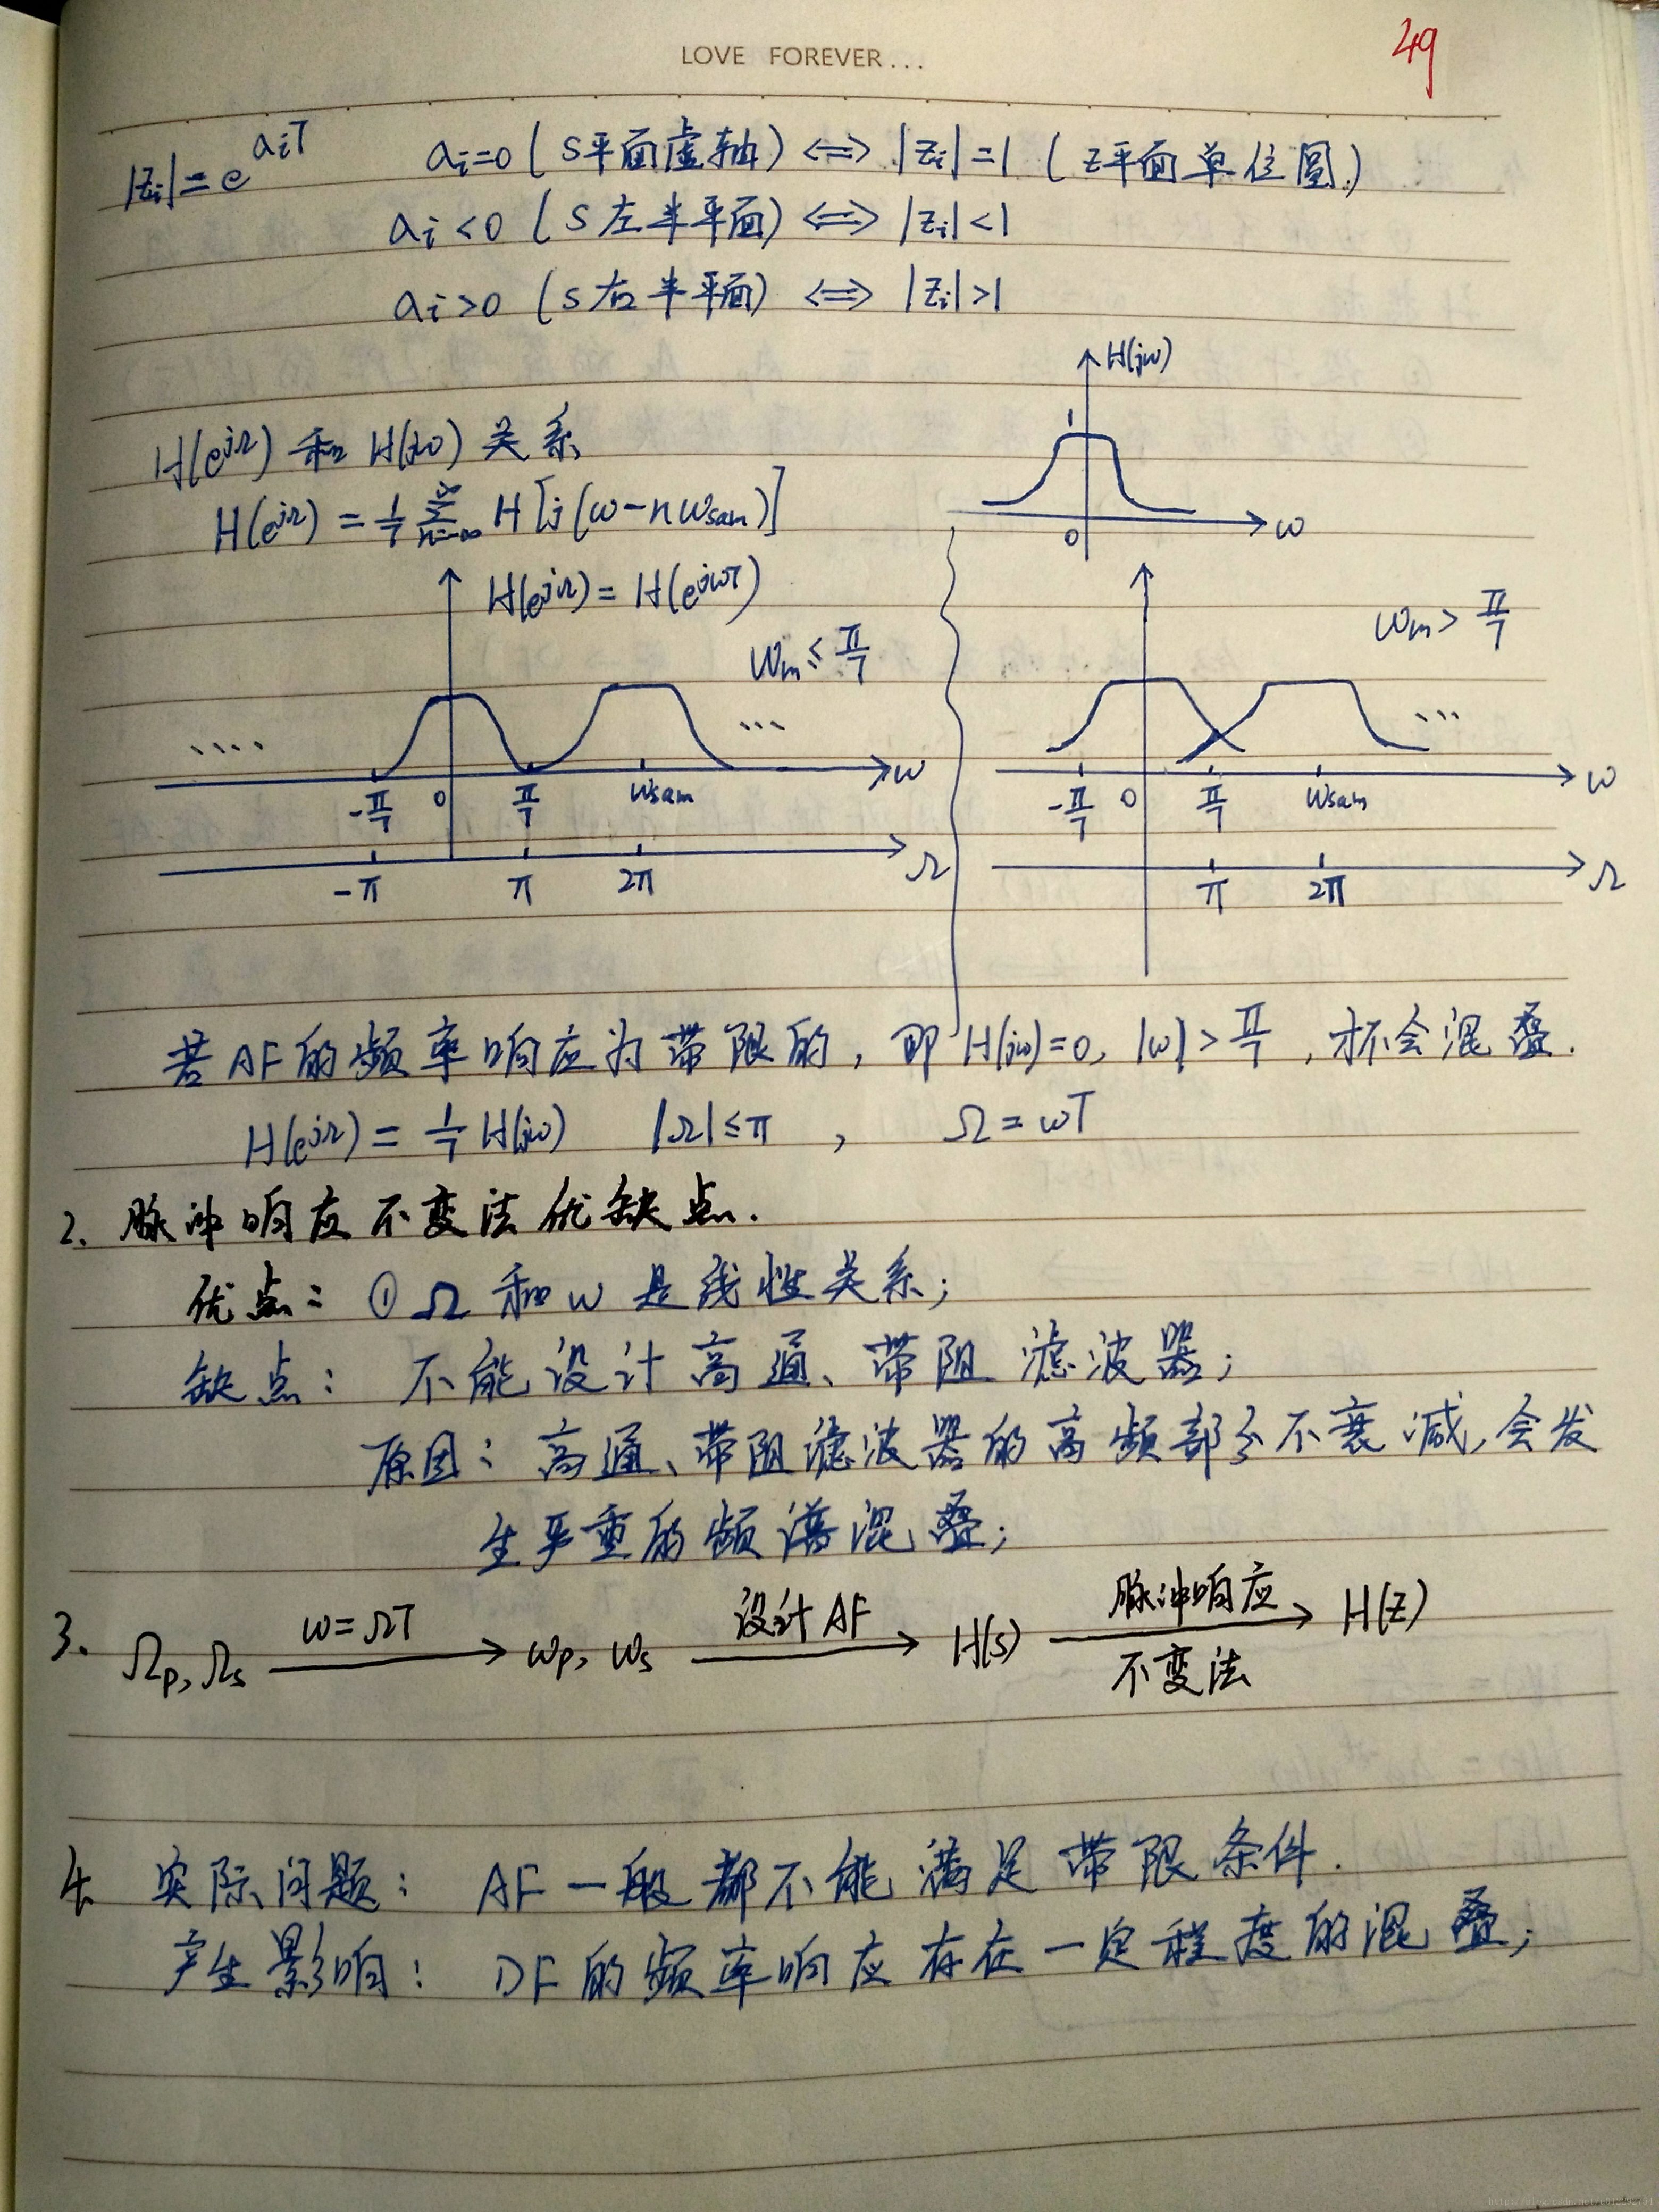 LOVE FOREVER...
49
|zᵢ|=e^{aᵢT} aᵢ=0 (S平面虚轴) ⇔ |zᵢ|=1 (Z平面单位圆)
aᵢ<0 (S左半平面) ⇔ |zᵢ|<1
aᵢ>0 (S右半平面) ⇔ |zᵢ|>1
H(jω)
1
0 ω
H(e^{jΩ}) 和 H(jω) 关系
H(e^{jΩ}) = 1/T ∑_{n=-∞}^{∞} H[j(ω-nω_{sam})]
H(e^{jΩ}) = H(e^{jωT})
ω_m ≤ π/T
.... ...
-π/T 0 π/T ω_{sam} ω
-π π 2π Ω
ω_m > π/T
...
-π/T 0 π/T ω_{sam} ω
π 2π Ω
若AF的频率响应为带限的, 即H(jω)=0, |ω|>π/T, 才不会混叠.
H(e^{jΩ}) = 1/T H(jω) |Ω|≤π , Ω=ωT
2. 脉冲响应不变法优缺点.
优点: ① Ω 和 ω 是线性关系;
缺点: 不能设计高通、带阻滤波器;
原因: 高通、带阻滤波器的高频部分不衰减,会发
生严重的频谱混叠;
3. Ω_p, Ω_s —ω=ΩT→ ω_p, ω_s —设计AF→ H(s) —脉冲响应不变法→ H(z)
4. 实际问题: AF一般都不能满足带限条件.
产生影响: DF的频率响应存在一定程度的混叠;